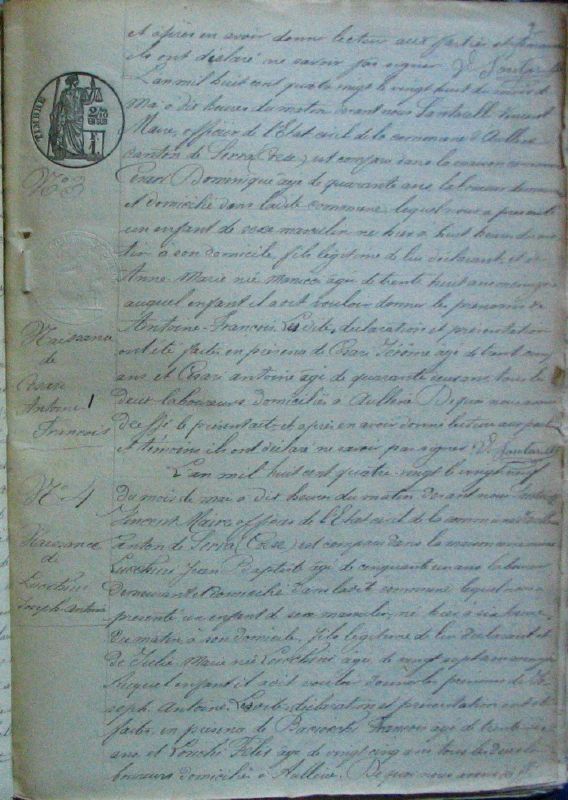 et après en avoir donné lecture aux parties et témoins
ils ont déclaré ne savoir pas signer
L'an mil huit cent quatre vingt le vingt huit du mois de
Mai à dix heures du matin devant nous Vincent
Maire, officier de l'Etat civil de la commune d'Aullène
canton de Serra (Corse) est comparu dans la maison commune
TIMBRE
N° 3
Cesari Dominique âgé de quarante ans laboureur
et domicilié dans la dite commune lequel nous a présenté
un enfant de sexe masculin né hier à huit heures du ma
tin à son domicile fils légitime de lui déclarant et de
Anne Marie née âgée de trente huit ans ménagère
auquel enfant il a dit vouloir donner les prénoms de
Antoine-François. Les dites déclaration et présentation
ont été faites en présence de Cesari Jérôme âgé de trente cinq
ans et Cesari Antoine âgé de quarante ans, tous les
deux laboureurs domiciliés à Aullène. De quoi nous avons
dressé le présent acte et après en avoir donné lecture aux parties
et témoins ils ont déclaré ne savoir pas signer
Naissance
de
Cesari
Antoine
François
L'an mil huit cent quatre vingt le vingt neuf
N° 4
du mois de mai à dix heures du matin devant nous
Vincent Maire officier de l'Etat civil de la commune d'Aullène
canton de Serra (Corse) est comparu dans la maison commune
Lucchini Jean Baptiste âgé de cinquante un ans laboureur
demeurant et domicilié dans la dite commune lequel nous a
présenté un enfant de sexe masculin, né hier à six heures
du matin à son domicile, fils légitime de lui déclarant et
de Julie Marie née Lucchini âgée de vingt sept ans ménagère
auquel enfant il a dit vouloir donner les prénoms de Jo
seph Antoine. Les dites déclaration et présentation ont été
faites en présence de François âgé de trente
ans et Félix âgé de vingt cinq ans tous les deux la
boureurs domiciliés à Aullène. De quoi nous avons
Naissance
de
Lucchini
Joseph Antoine